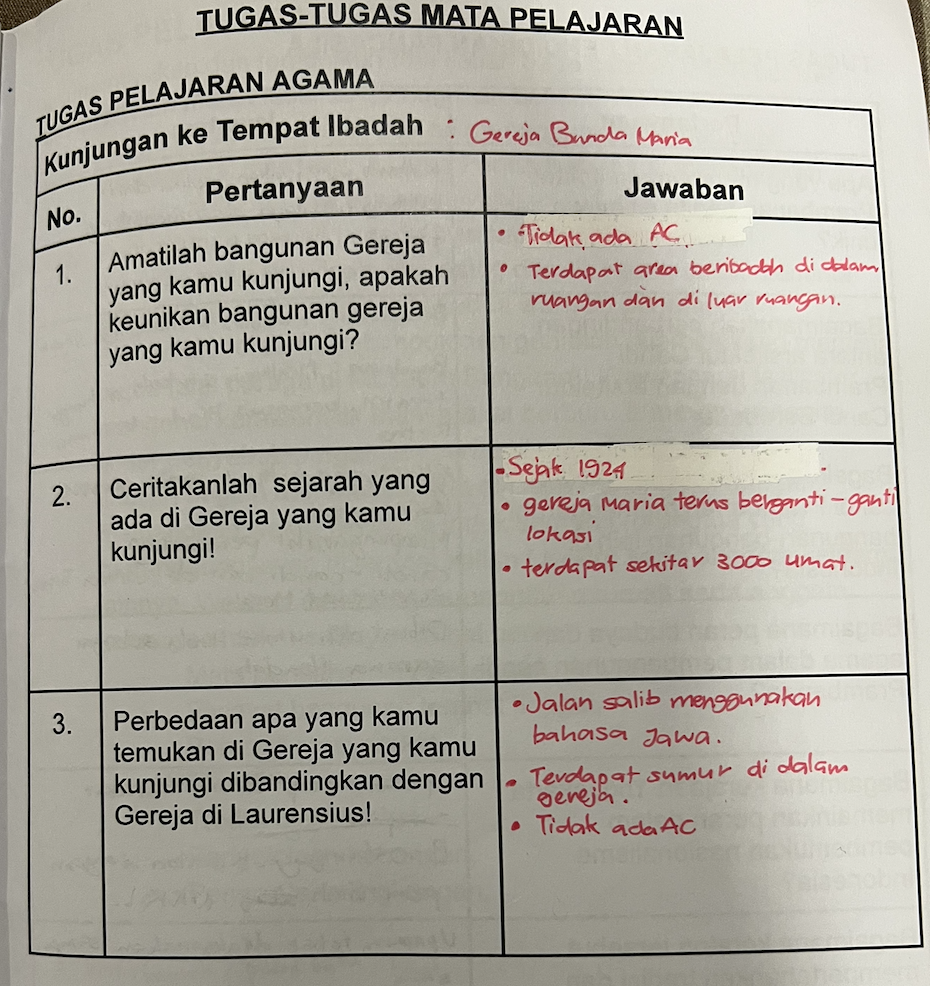 TUGAS-TUGAS MATA PELAJARAN
TUGAS PELAJARAN AGAMA
Kunjungan ke Tempat Ibadah : Gereja Bunda Maria
No.
Pertanyaan
Jawaban
1.
Amatilah bangunan Gereja
yang kamu kunjungi, apakah
keunikan bangunan gereja
yang kamu kunjungi?
• Tidak ada AC
• Terdapat area beribadah di dalam
ruangan dan di luar ruangan.
2.
Ceritakanlah sejarah yang
ada di Gereja yang kamu
kunjungi!
• Sejak 1924
• gereja Maria terus berganti-ganti
lokasi
• terdapat sekitar 3000 umat.
3.
Perbedaan apa yang kamu
temukan di Gereja yang kamu
kunjungi dibandingkan dengan
Gereja di Laurensius!
• Jalan salib menggunakan
bahasa Jawa.
• Terdapat sumur di dalam
gereja.
• Tidak ada AC